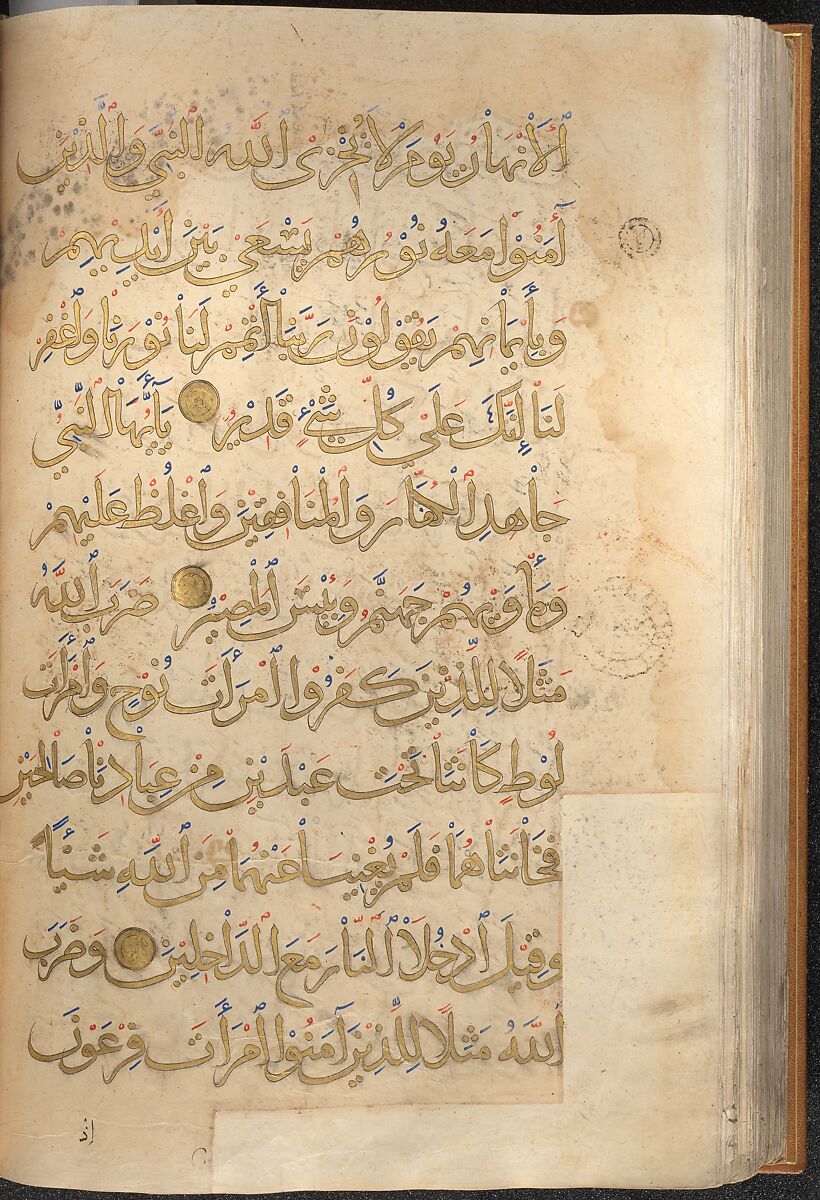 ٱلْأَنْهَارُ يَوْمَ لَا يُخْزِى ٱللَّهُ ٱلنَّبِيَّ وَٱلَّذِيْنَ
آمَنُوْا مَعَهُ نُوْرُهُمْ يَسْعَىٰ بَيْنَ أَيْدِيْهِمْ
وَبِأَيْمَانِهِمْ يَقُوْلُوْنَ رَبَّنَا أَتْمِمْ لَنَا نُوْرَنَا وَٱغْفِرْ
لَنَا إِنَّكَ عَلَىٰ كُلِّ شَىْءٍ قَدِيْرٌ يَآ أَيُّهَا ٱلنَّبِيُّ
جَاهِدِ ٱلْكُفَّارَ وَٱلْمُنَافِقِيْنَ وَٱغْلُظْ عَلَيْهِمْ
وَمَأْوٰيهُمْ جَهَنَّمُ وَبِئْسَ ٱلْمَصِيْرُ ضَرَبَ ٱللَّهُ
مَثَلًا لِلَّذِيْنَ كَفَرُوْا ٱمْرَأَتَ نُوْحٍ وَٱمْرَأَتَ
لُوْطٍ كَانَتَا تَحْتَ عَبْدَيْنِ مِنْ عِبَادِنَا صَالِحَيْنِ
فَخَانَتَاهُمَا فَلَمْ يُغْنِيَا عَنْهُمَا مِنَ ٱللَّهِ شَيْئًا
وَقِيْلَ ٱدْخُلَا ٱلنَّارَ مَعَ ٱلدَّاخِلِيْنَ وَضَرَبَ
ٱللَّهُ مَثَلًا لِلَّذِيْنَ آمَنُوْا ٱمْرَأَتَ فِرْعَوْنَ
إذ